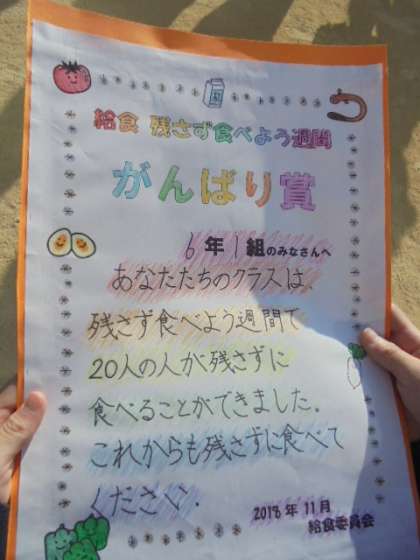 給食 残さず食べよう週間
がんばり賞
6年1組のみなさんへ
あなたたちのクラスは、
残さず食べよう週間で
20人の人が残さずに
食べることができました。
これからも残さずに食べて
ください。
2018年11月
給食委員会